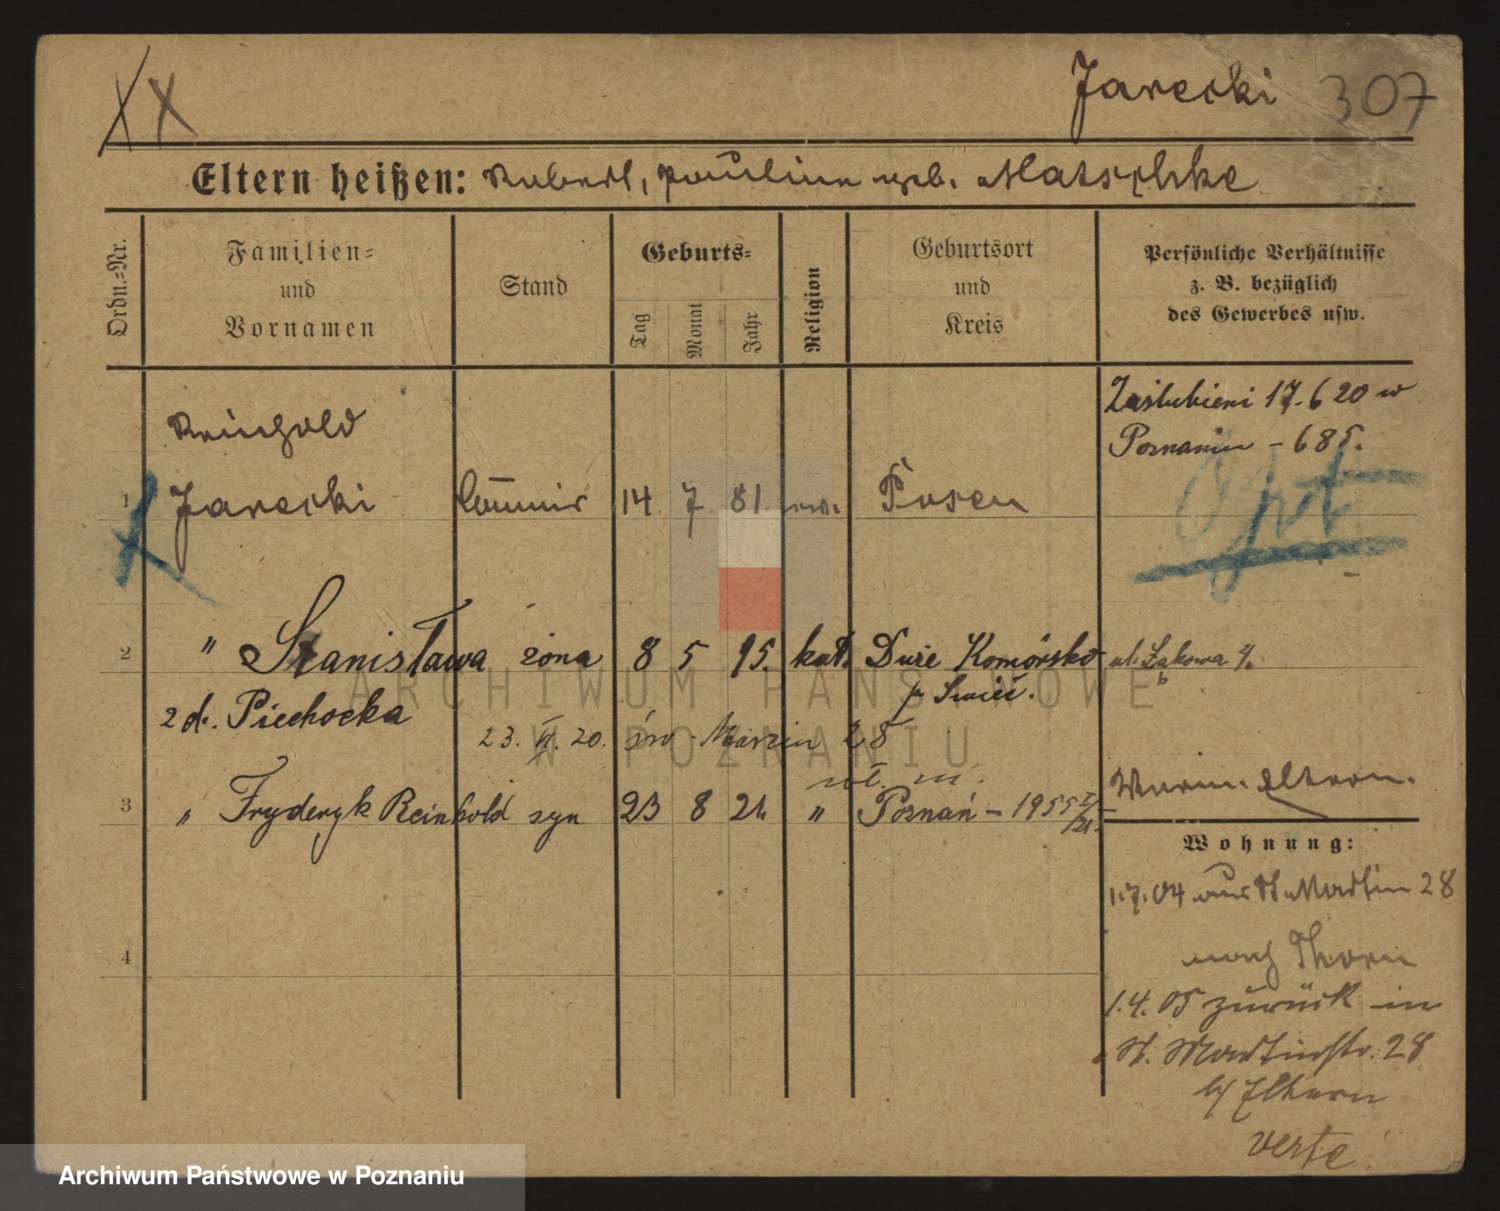 Jarecki 307
Eltern heißen: Robert, Pauline geb. Matschke
Ordn.=Nr.
Familien= und Vornamen
Stand
Geburts=
Tag
Monat
Jahr
Religion
Geburtsort und Kreis
Persönliche Verhältnisse z. B. bezüglich des Gewerbes usw.
Zaślubieni 17.6 20 w
Poznaniu - 685.
Reinhold
1 Jarecki Commis 14 7 81 Posen
Opt
2 " Stanisława żona 8 5 95. kat. Duże Komórsko ul. Łąkowa 4.
p Świeć.
z d. Piechocka
23. 20. św. Marcin 28
3 " Fryderyk Reinhold syn 23 8 21 " Poznań - 1955 I/21.
Eltern.
Wohnung:
1.7.04 aus St Martin 28
nach Thorn
1.4.05 zurück in
St. Martinstr. 28
4
b/ Eltern
verte
ARCHIWUM PAŃSTWOWE
W POZNANIU
Archiwum Państwowe w Poznaniu